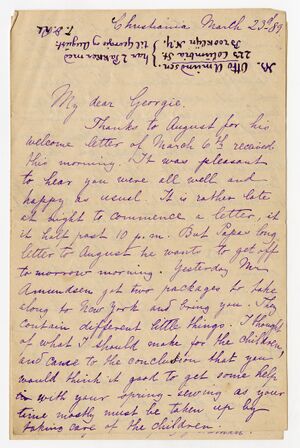 Christiania March 23rd 89
N. Otto Amundsen,
223 Columbia St.
Brooklyn N.Y.
har 2 Pakker med
til Georgie og August.
My dear Georgie.
Thanks to August for his
welcome letter of March 6th received
this morning. It was pleasant
to hear you were all well and
happy as usual. It is rather late
at night to commence a letter, it
is half past 10 p.m. But Papas long
letter to August he wants to get off
to morrow morning. Yesterday Mr
Amundsen got two packages to take
along to New York and bring you. They
contain different little things. I thought
of what I should make for the children,
and came to the conclusion that you
would think it good to get some help
with your spring-sewing as your
time mostly must be taken up by
taking care of the children.